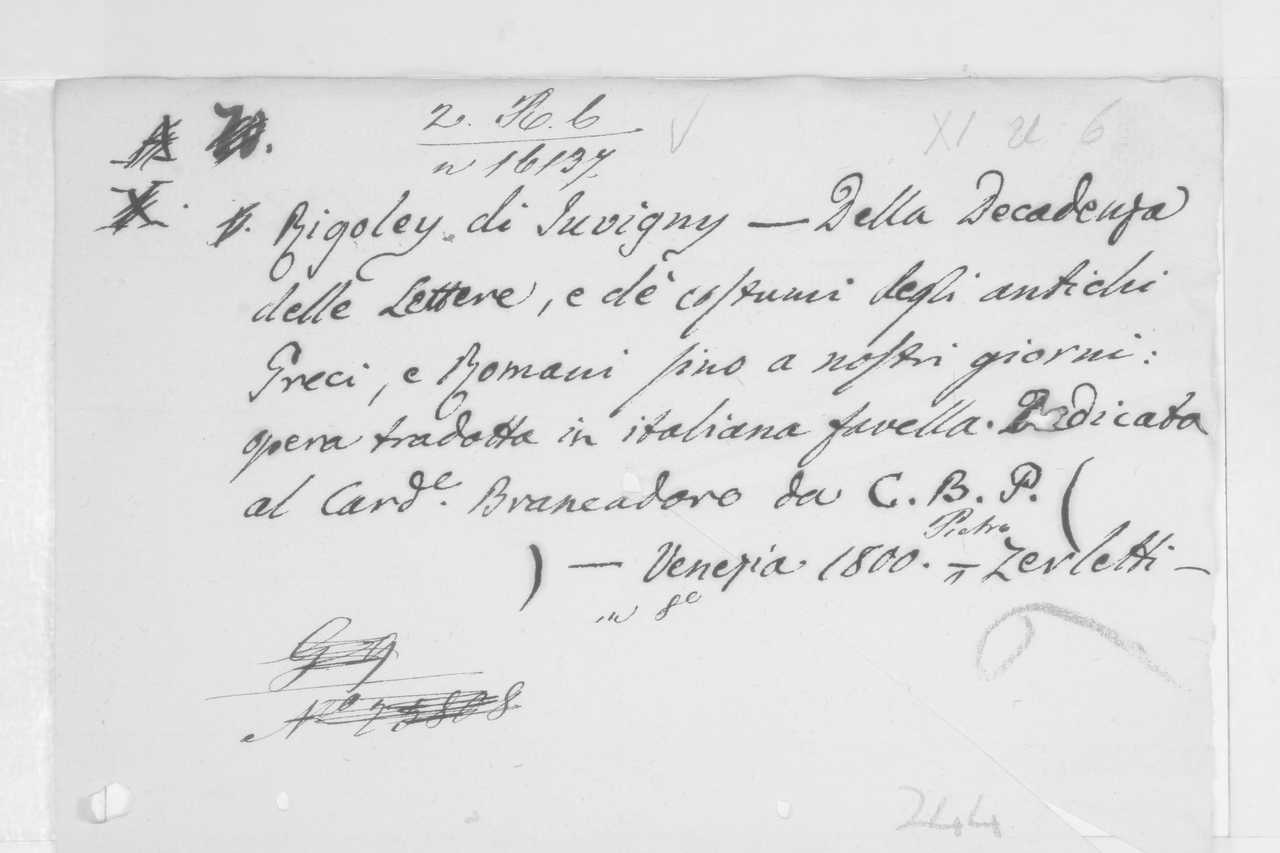 2. R. 6
n 16137
XI 6
Rigoley di Juvigny — Della Decadenza
delle Lettere, e de' costumi degli antichi
Greci, e Romani sino a nostri giorni:
opera tradotta in italiana favella. Dedicata
al Card.e Brancadoro da C. B. P. (
) — Venezia 1800. = Pietro Zerletti —
in 8o